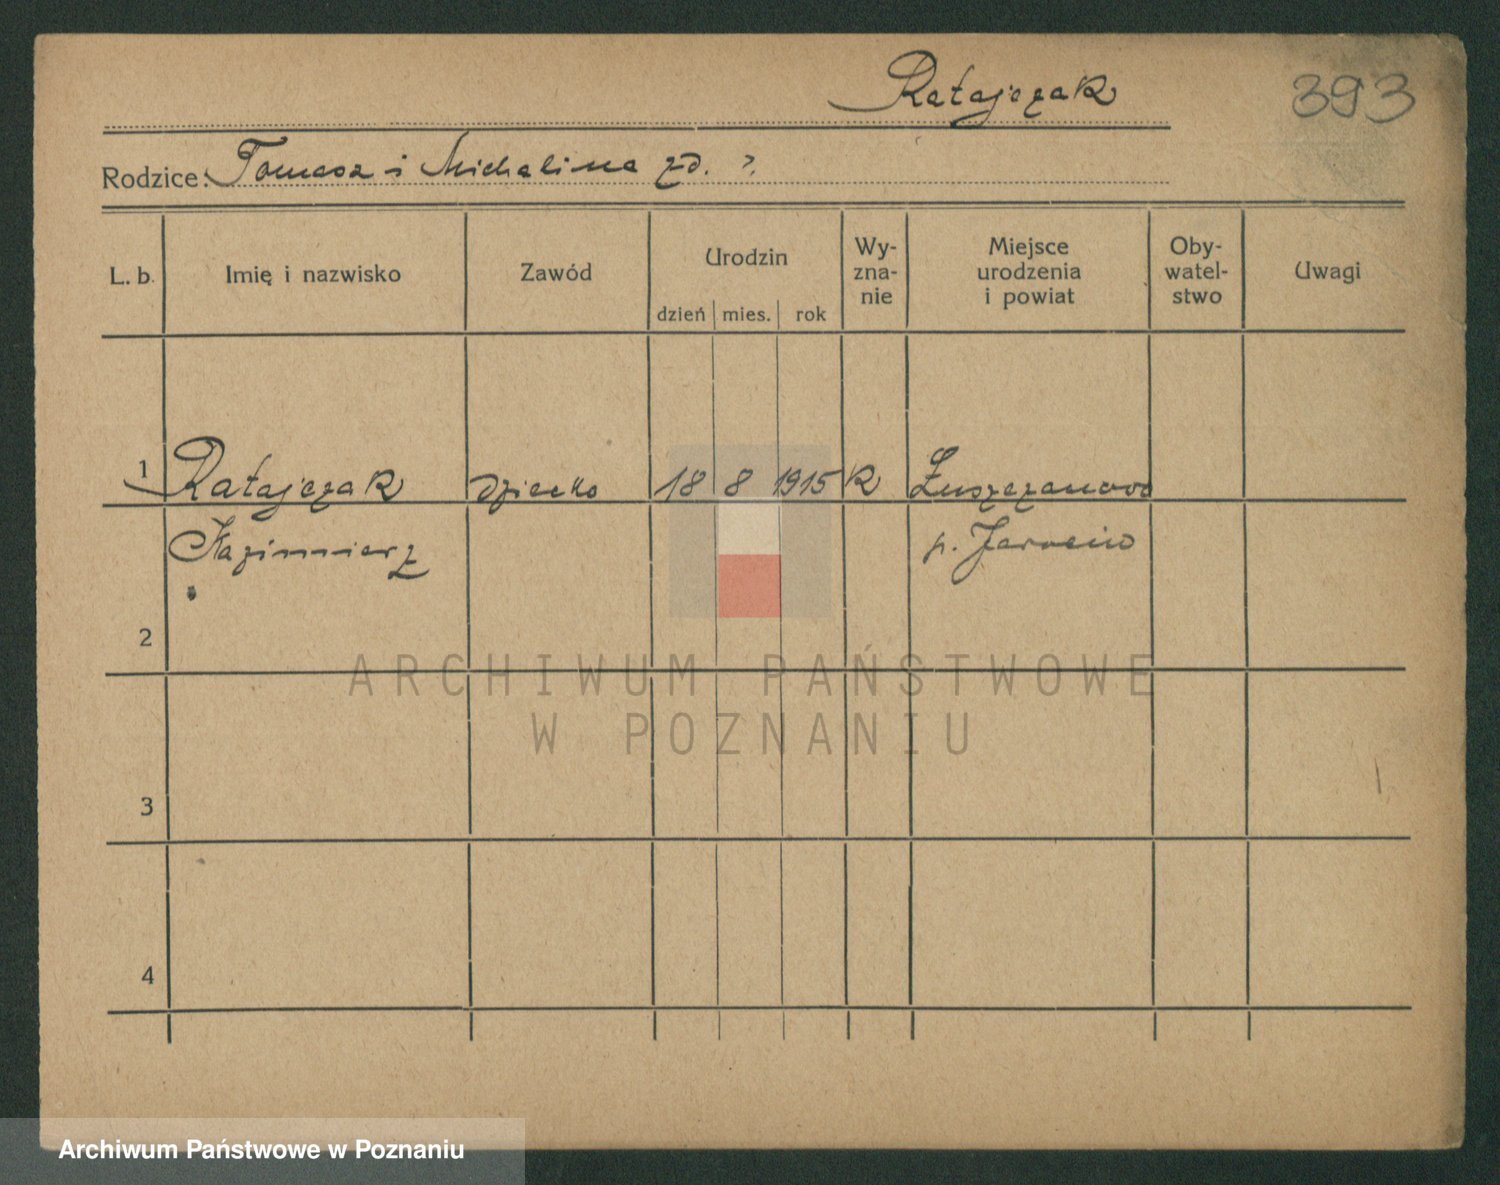 Ratajczak
393
Rodzice: Tomasz i Michalina zd. ?
L. b.
Imię i nazwisko
Zawód
Urodzin
dzień mies. rok
Wy-
zna-
nie
Miejsce
urodzenia
i powiat
Oby-
watel-
stwo
Uwagi
1 Ratajczak dziecko 18 8 1915 K Łuszczanowo
Kazimierz p. Jarocin
2
3
4
ARCHIWUM PAŃSTWOWE
W POZNANIU
Archiwum Państwowe w Poznaniu